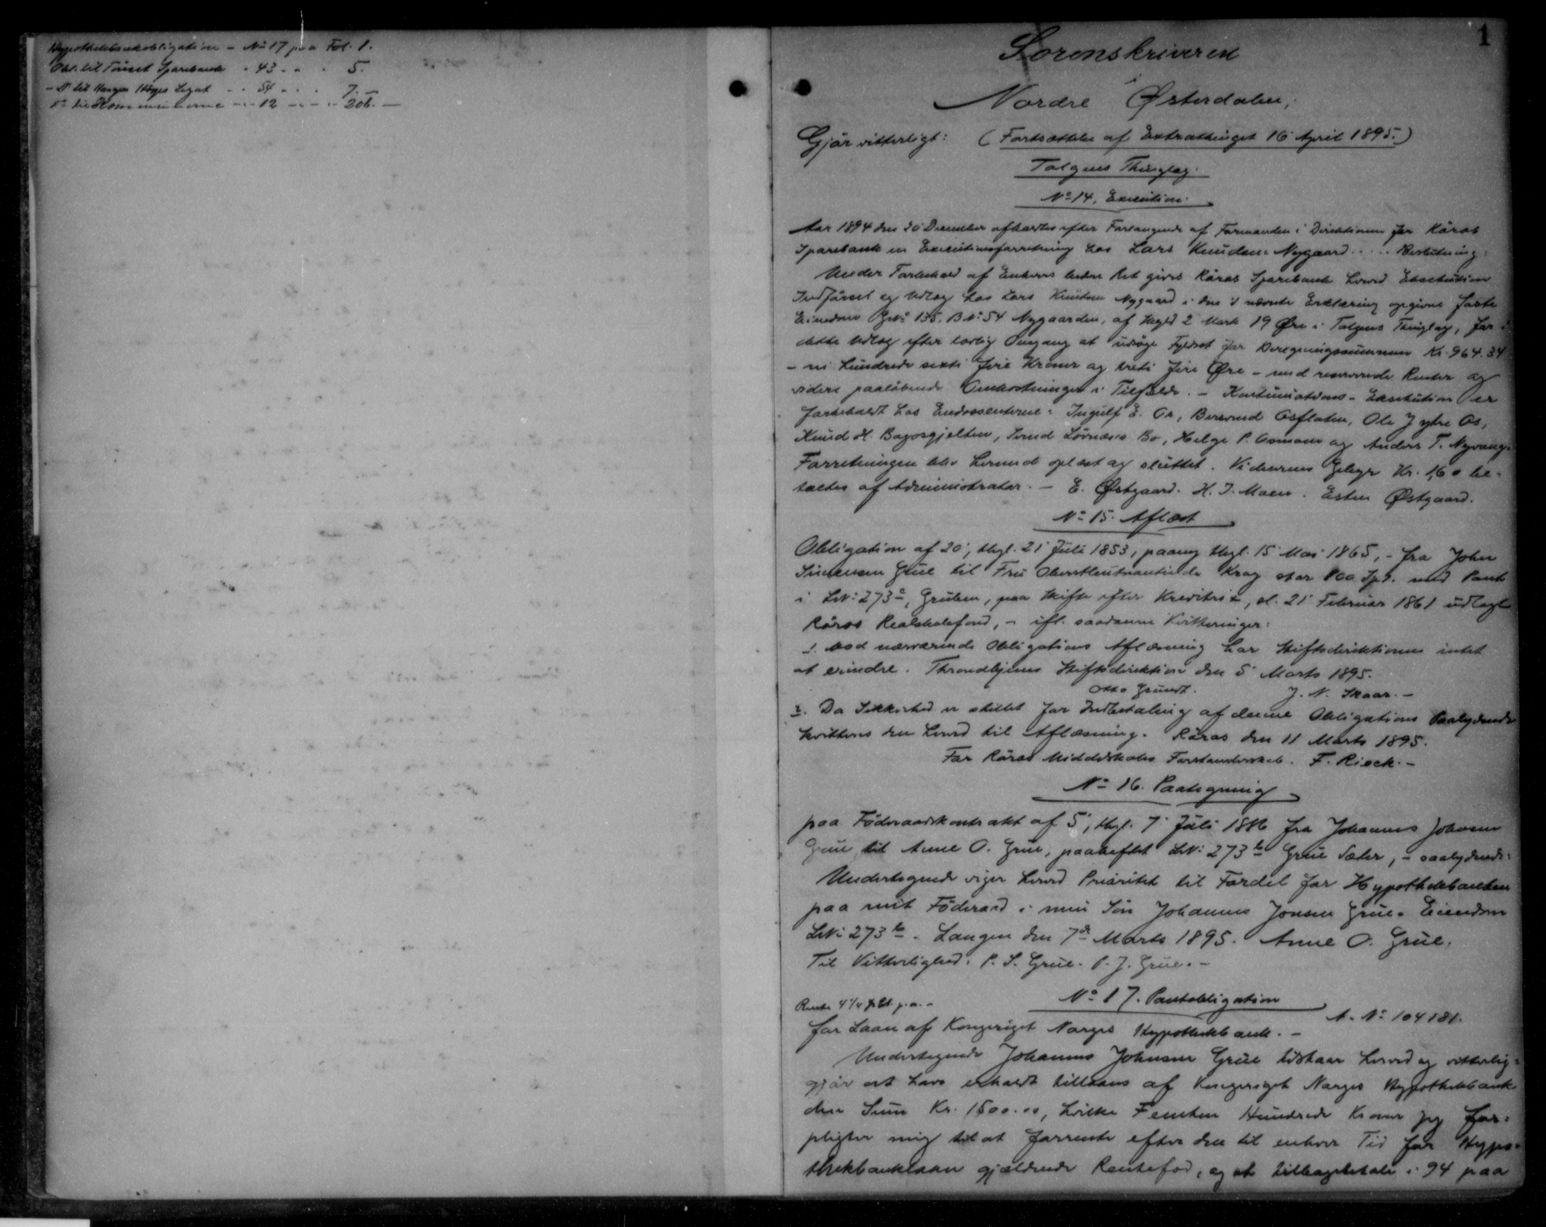 Hypothekbankobligation - No 17 paa Fol. 1.
Obl. til Tönset Sparebank - 43 - - - 5.
- Do til Hanges Höyes Legat - - 54 - - - 7.
Do til Kommunerne - - 12 - - - 206. -
1
Sorenskriveren
i
Nordre Østerdalen,
Gjör vitterligt: (Fortsættelse af Extrathinget 16 April 1895.)
Tolgens Thinglag.
No 14, Execution.
Aar 1894 den 20 December afholdtes efter Forlangende af Formanden i Direktionen for Röros
Sparebank en Executionsforretning hos Lars Knudsen Nygaard ..... Beslutning:
Under Forbehold af Enhvers bedre Ret gives Röros Sparebank herved Exekution
Indförsel og Udlæg hos Lars Knudsen Nygaard i den i nævnte Erklæring opgivne faste
Eiendom GNo 135. BNo 54 Nygaarden, af Skyld 2 Mark 19 Øre i Tolgens Thinglag, for i
dette Udlæg efter lovlig Omgang at udsöge Fyldest for Beregningssummen Kr. 964.34
- ni hundrede sexti fire Kroner og treti fire Øre - med resterende Renter og
videre paalöbende Omkostninger i Tilfælde. - Kontinuations-Exekution er
forbeholdt hos Endossenterne: Ingulf E. Os, Bersvend Osfloten, Ole J ytre Os,
Knud H. Bagosgjelten, Svend Lövnæss Bo, Helge P. Osmoen og Anders T. Nyvang.
Forretningen blev hermed oplæst og sluttet. Vidnernes Gebyr Kr. 1,60 be-
taltes af Administrator. - E. Østgaard. H. J. Moen. Esten Østgaard.
No 15. Aflæst
Obligation af 20, thgl. 21 Juli 1853, paany thgl. 15 Mai 1865, - fra John
Simensen Grue til Fru Oberstleutnantinde Krag stor 800 Spd. med Pant
i LNo 273a, Gruben, paa Skifte efter Kreditrix, sl. 21 Februar 1861 udlagt
Röros Realskolefond, - ifl. saadanne Kvitteringer:
1. Mod nærværende Obligations Aflæsning har Stiftsdirektionen intet
at erindre. Throndhjems Stiftsdirektion den 5 Marts 1895.
Otto Grundt. J. N. Skaar. -
2. Da Sikkerhed er stillet for Indbetaling af denne Obligations Paalydende
kvitteres den herved til Aflæsning. Röros den 11 Marts 1895.
For Röros Middelskoles Forstanderskab. F. Rieck. -
No 16. Paategning
paa Föderaadskontrakt af 5, thgl. 7 Juli 1886 fra Johannes Johnsen
Grue til Anne O. Grue, paaheftet LNo 273b Grue Sæter, - saalydende:
Undertegnede viger herved Prioritet til Fordel for Hypothekbanken
paa mit Föderaad i min Sön Johannes Jonsen Grue's Eiendom
LNo 273b. Langen den 7de Marts 1895. Anne O. Grue.
Til Vitterlighed: P. S. Grue. P. J. Grue. -
No 17. Pantobligation
Rente 4¼ pCt p.a. - A. No 104181.
for Laan af Kongeriget Norges Hypothekbank. -
Undertegnede Johannes Johnsen Grue tilstaar herved og vitterlig-
gjör at have erholdt tillaans af Kongeriget Norges Hypothekbank
den Sum Kr. 1500.00, hvilke Femten Hundrede Kroner jeg for-
pligter mig til at forrente efter den til enhver Tid for Hypo-
thekbanklaan gjældende Rentefod, og at tilbagebetale i 94 paa